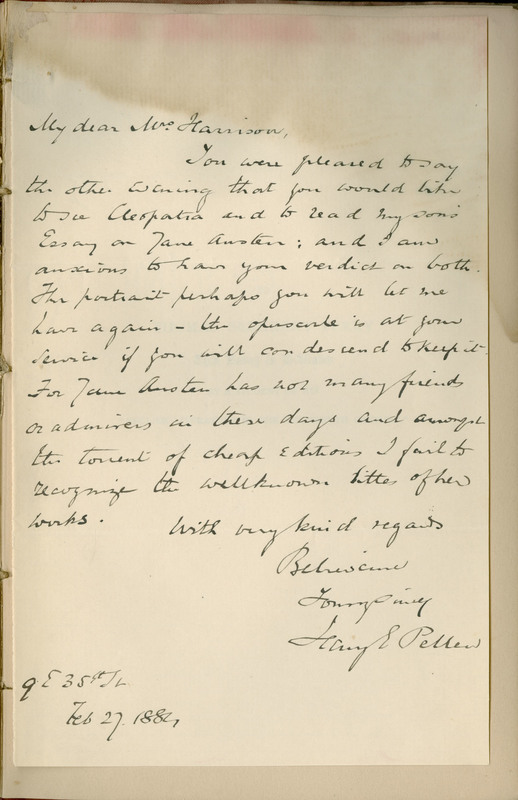 My dear Mrs Harrison,
You were pleased to say
the other evening that you would like
to see Cleopatra and to read my son's
Essay on Jane Austen; and I am
anxious to have your verdict on both.
The portrait perhaps you will let me
have again – the opuscule is at your
service if you will condescend to keep it.
For Jane Austen has not many friends
or admirers in these days and amongst
the torrent of cheap editions I fail to
recognize the wellknown titles of her
works.
With very kind regards
Believe me
Yours sincly
Henry E Pellew
9 E 35th St
Feb 27. 1884